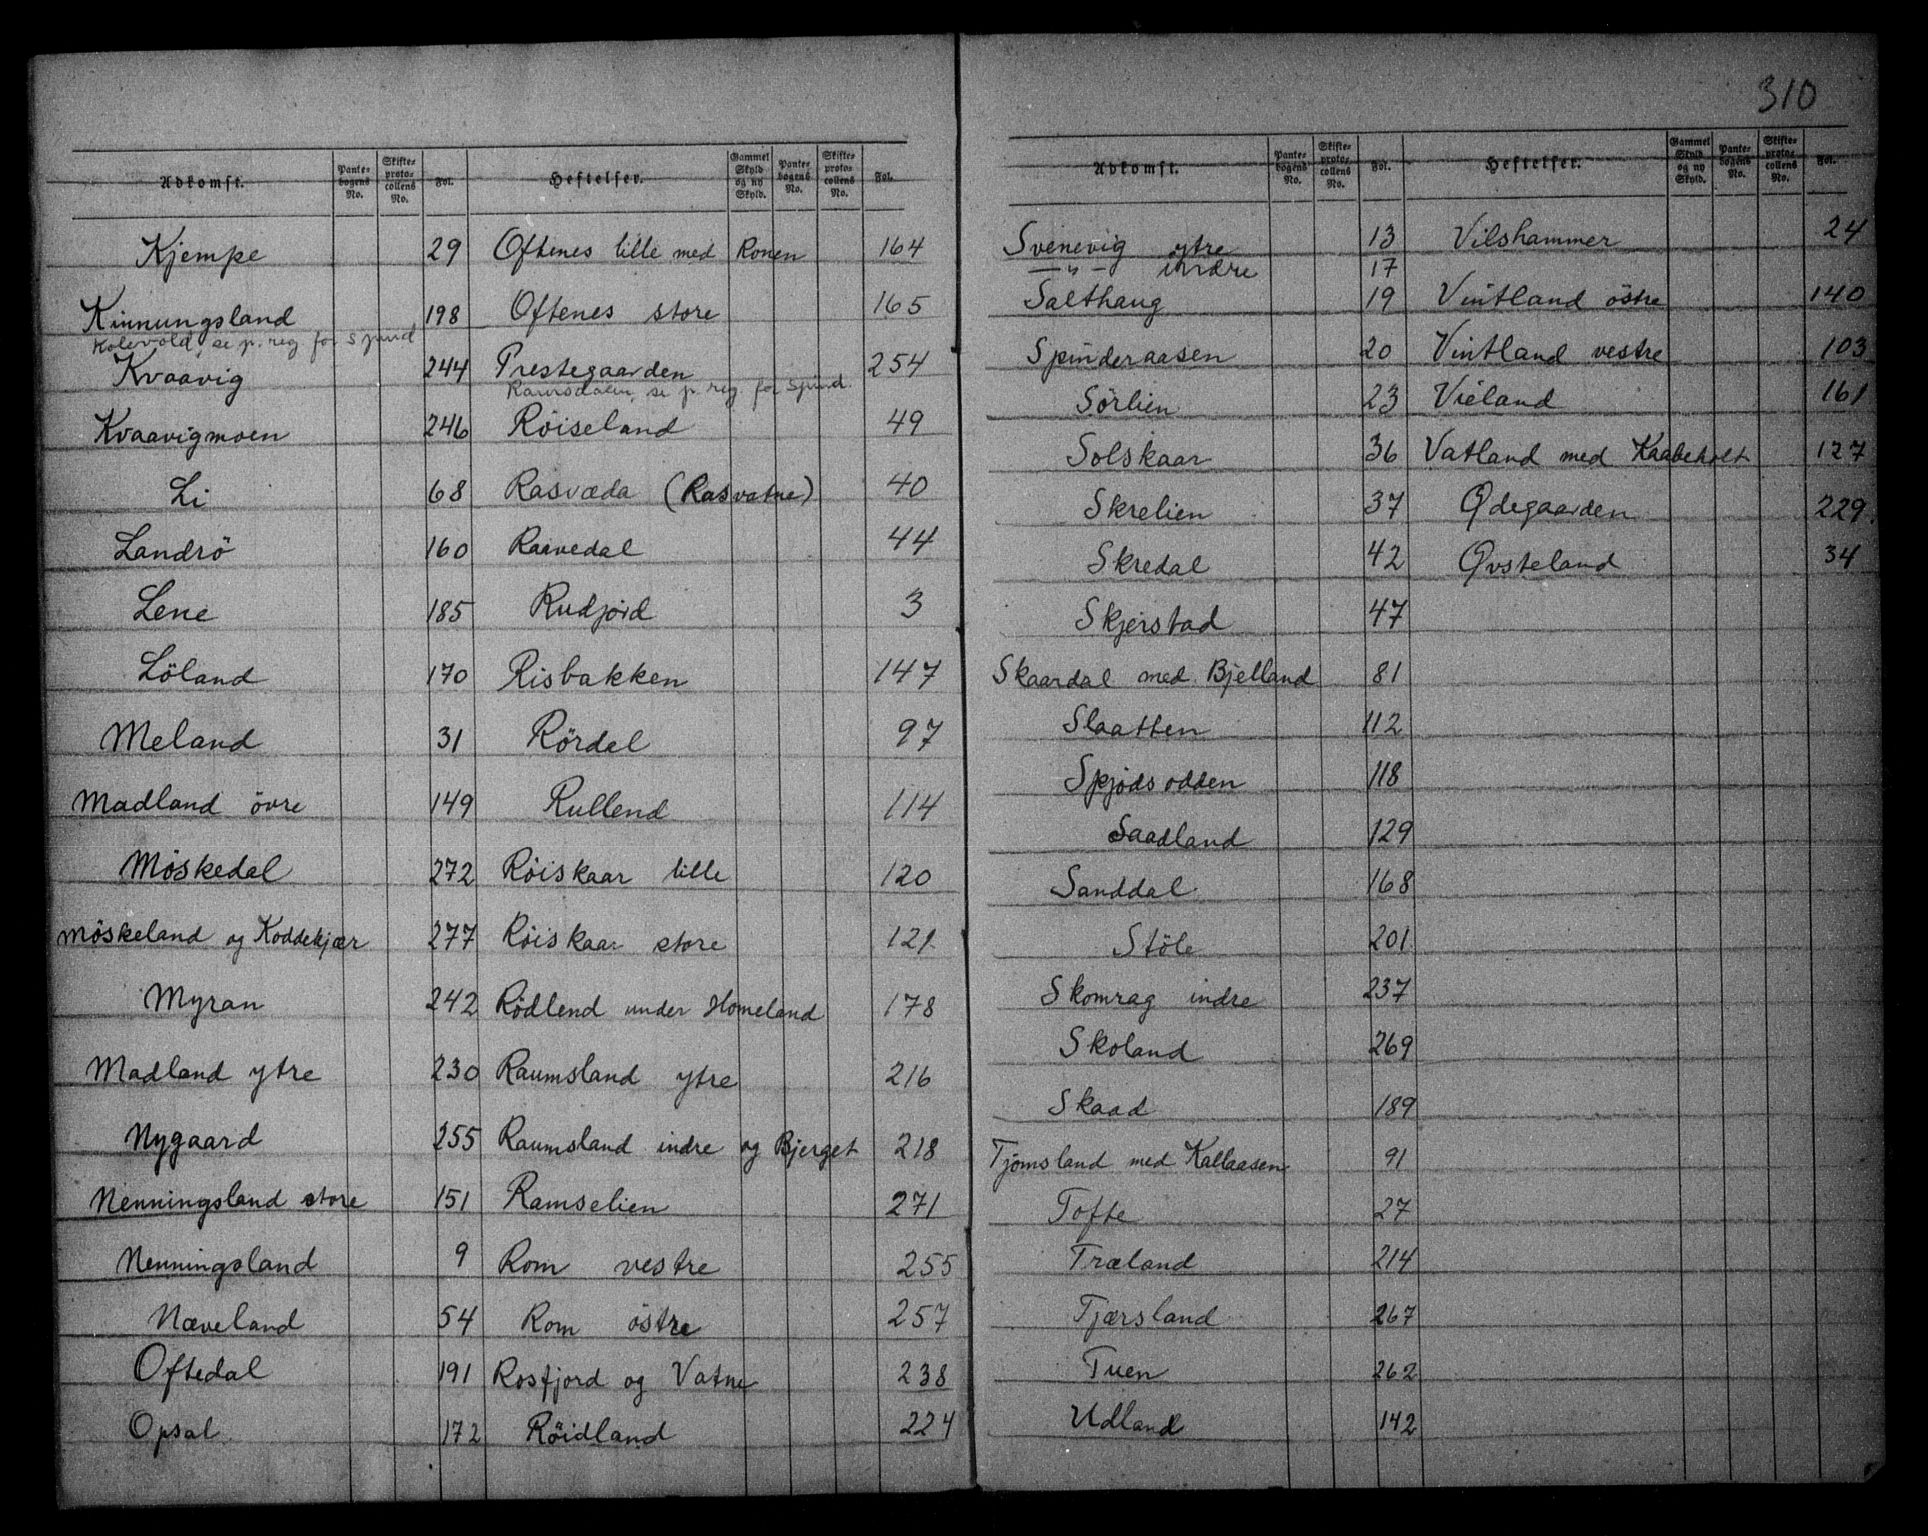 310
Adkomst. Pante-bogens No. Skifte-proto-collens No. Fol. Heftelser. Gammel Skyld og ny Skyld. Pante-bogens No. Skifte-proto-collens No. Fol.
Kjempe 29
Kinnungsland 198
Kolevold, se p. reg for Spind
Kvaavig 244
Kvaavigmoen 246
Li 68
Landrö 160
Lene 185
Löland 170
Meland 31
Madland övre 149
Möskedal 272
Möskeland og Koddekjær 277
Myran 242
Madland ytre 230
Nygaard 255
Nenningsland store 151
Nenningsland 9
Næveland 54
Oftedal 191
Opsal 172
Oftenes lille med Ronen 164
Oftenes store 165
Prestegaarden 254
Ramsdalen, se p. reg for Spind.
Röiseland 49
Rasvæda (Rasvatne) 40
Raavedal 44
Rudjord 3
Risbakken 147
Rördal 97
Rullend 114
Röiskaar lille 120
Röiskaar store 121
Rödlend under Homeland 178
Raumsland ytre 216
Raumsland indre og Bjerget 218
Ramselien 271
Rom vestre 255
Rom östre 257
Rosfjord og Vatne 238
Röidland 224
Adkomst. Pante-bogens No. Skifte-proto-collens No. Fol. Heftelser. Gammel Skyld og ny Skyld. Pante-bogens No. Skifte-proto-collens No. Fol.
Svenevig ytre 13
— " — indre 17
Salthaug 19
Spinderaasen 20
Sörlien 23
Solskaar 36
Skrelien 37
Skredal 42
Skjerstad 47
Skaardal med Bjelland 81
Slaatten 112
Spjodsodden 118
Saadland 129
Sanddal 168
Stöle 201
Skomrag indre 237
Skoland 269
Skaad 189
Tjomsland med Kallaasen 91
Tofte 27
Træland 214
Tjærsland 267
Tuen 262
Udland 142
Vilshammer 24
Vintland östre 140
Vintland vestre 103
Vieland 161
Vatland med Kaabeholt 127
Ødegaarden 229.
Øvsteland 34